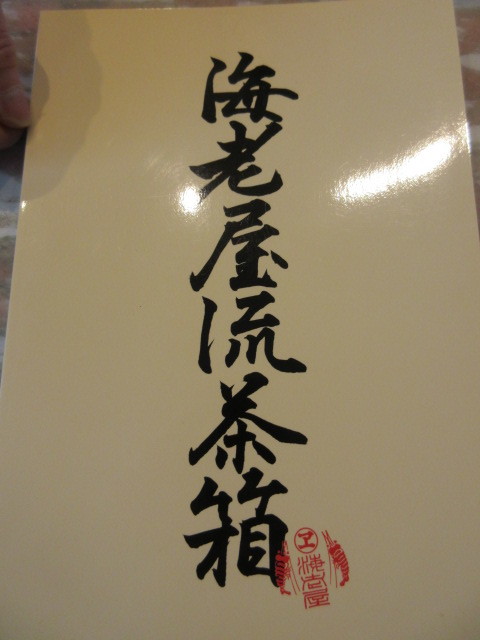 海老屋流茶箱
ヱ
海老屋